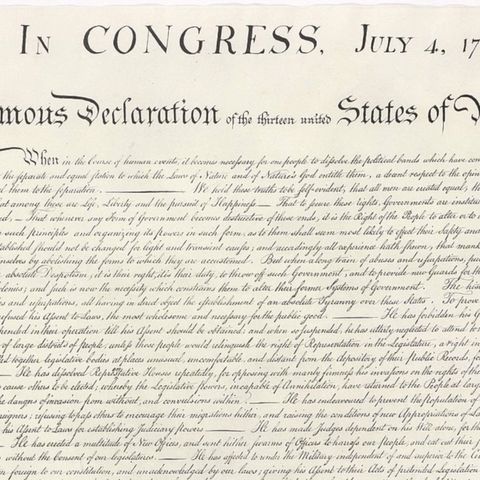 IN CONGRESS, JULY 4, 17
mous Declaration of the thirteen united States of
When in the Course of human events, it becomes necessary for one people to dissolve the political bands which have con
the separate and equal station to which the Laws of Nature and of Nature's God entitle them, a decent respect to the opin
l them to the separation. We hold these truths to be self-evident, that all men are created equal, th
at among these are Life, Liberty and the pursuit of Happiness. — That to secure these rights, Governments are institut
ed, — That whenever any Form of Government becomes destructive of these ends, it is the Right of the People to alter or to
such principles and organizing its powers in such form, as to them shall seem most likely to effect their Safety and
tablished should not be changed for light and transient causes; and accordingly all experience hath shewn, that mank
mselves by abolishing the forms to which they are accustomed. But when a long train of abuses and usurpations, pur
absolute Despotism, it is their right, it is their duty, to throw off such Government, and to provide new Guards for th
olonies; and such is now the necessity which constrains them to alter their former Systems of Government. The hist
s and usurpations, all having in direct object the establishment of an absolute Tyranny over these States. To prove
efused his Assent to Laws, the most wholesome and necessary for the public good. He has forbidden his G
pended in their operation till his Assent should be obtained; and when so suspended, he has utterly neglected to attend to
of large districts of people, unless those people would relinquish the right of Representation in the Legislature, a right in
ed together legislative bodies at places unusual, uncomfortable, and distant from the depository of their Public Records, fo
He has dissolved Representative Houses repeatedly, for opposing with manly firmness his invasions on the rights of the
cause others to be elected; whereby the Legislative powers, incapable of Annihilation, have returned to the People at large
he dangers of invasion from without, and convulsions within. He has endeavoured to prevent the population of
eigners; refusing to pass others to encourage their migrations hither, and raising the conditions of new Appropriations of La
his Assent to Laws for establishing Judiciary powers. He has made Judges dependent on his Will alone, for th
He has erected a multitude of New Offices, and sent hither swarms of Officers to harrass our people, and eat out their
without the Consent of our legislatures. He has affected to render the Military independent of and superior to the Ci
n foreign to our constitution, and unacknowledged by our laws; giving his Assent to their Acts of pretended Legislation